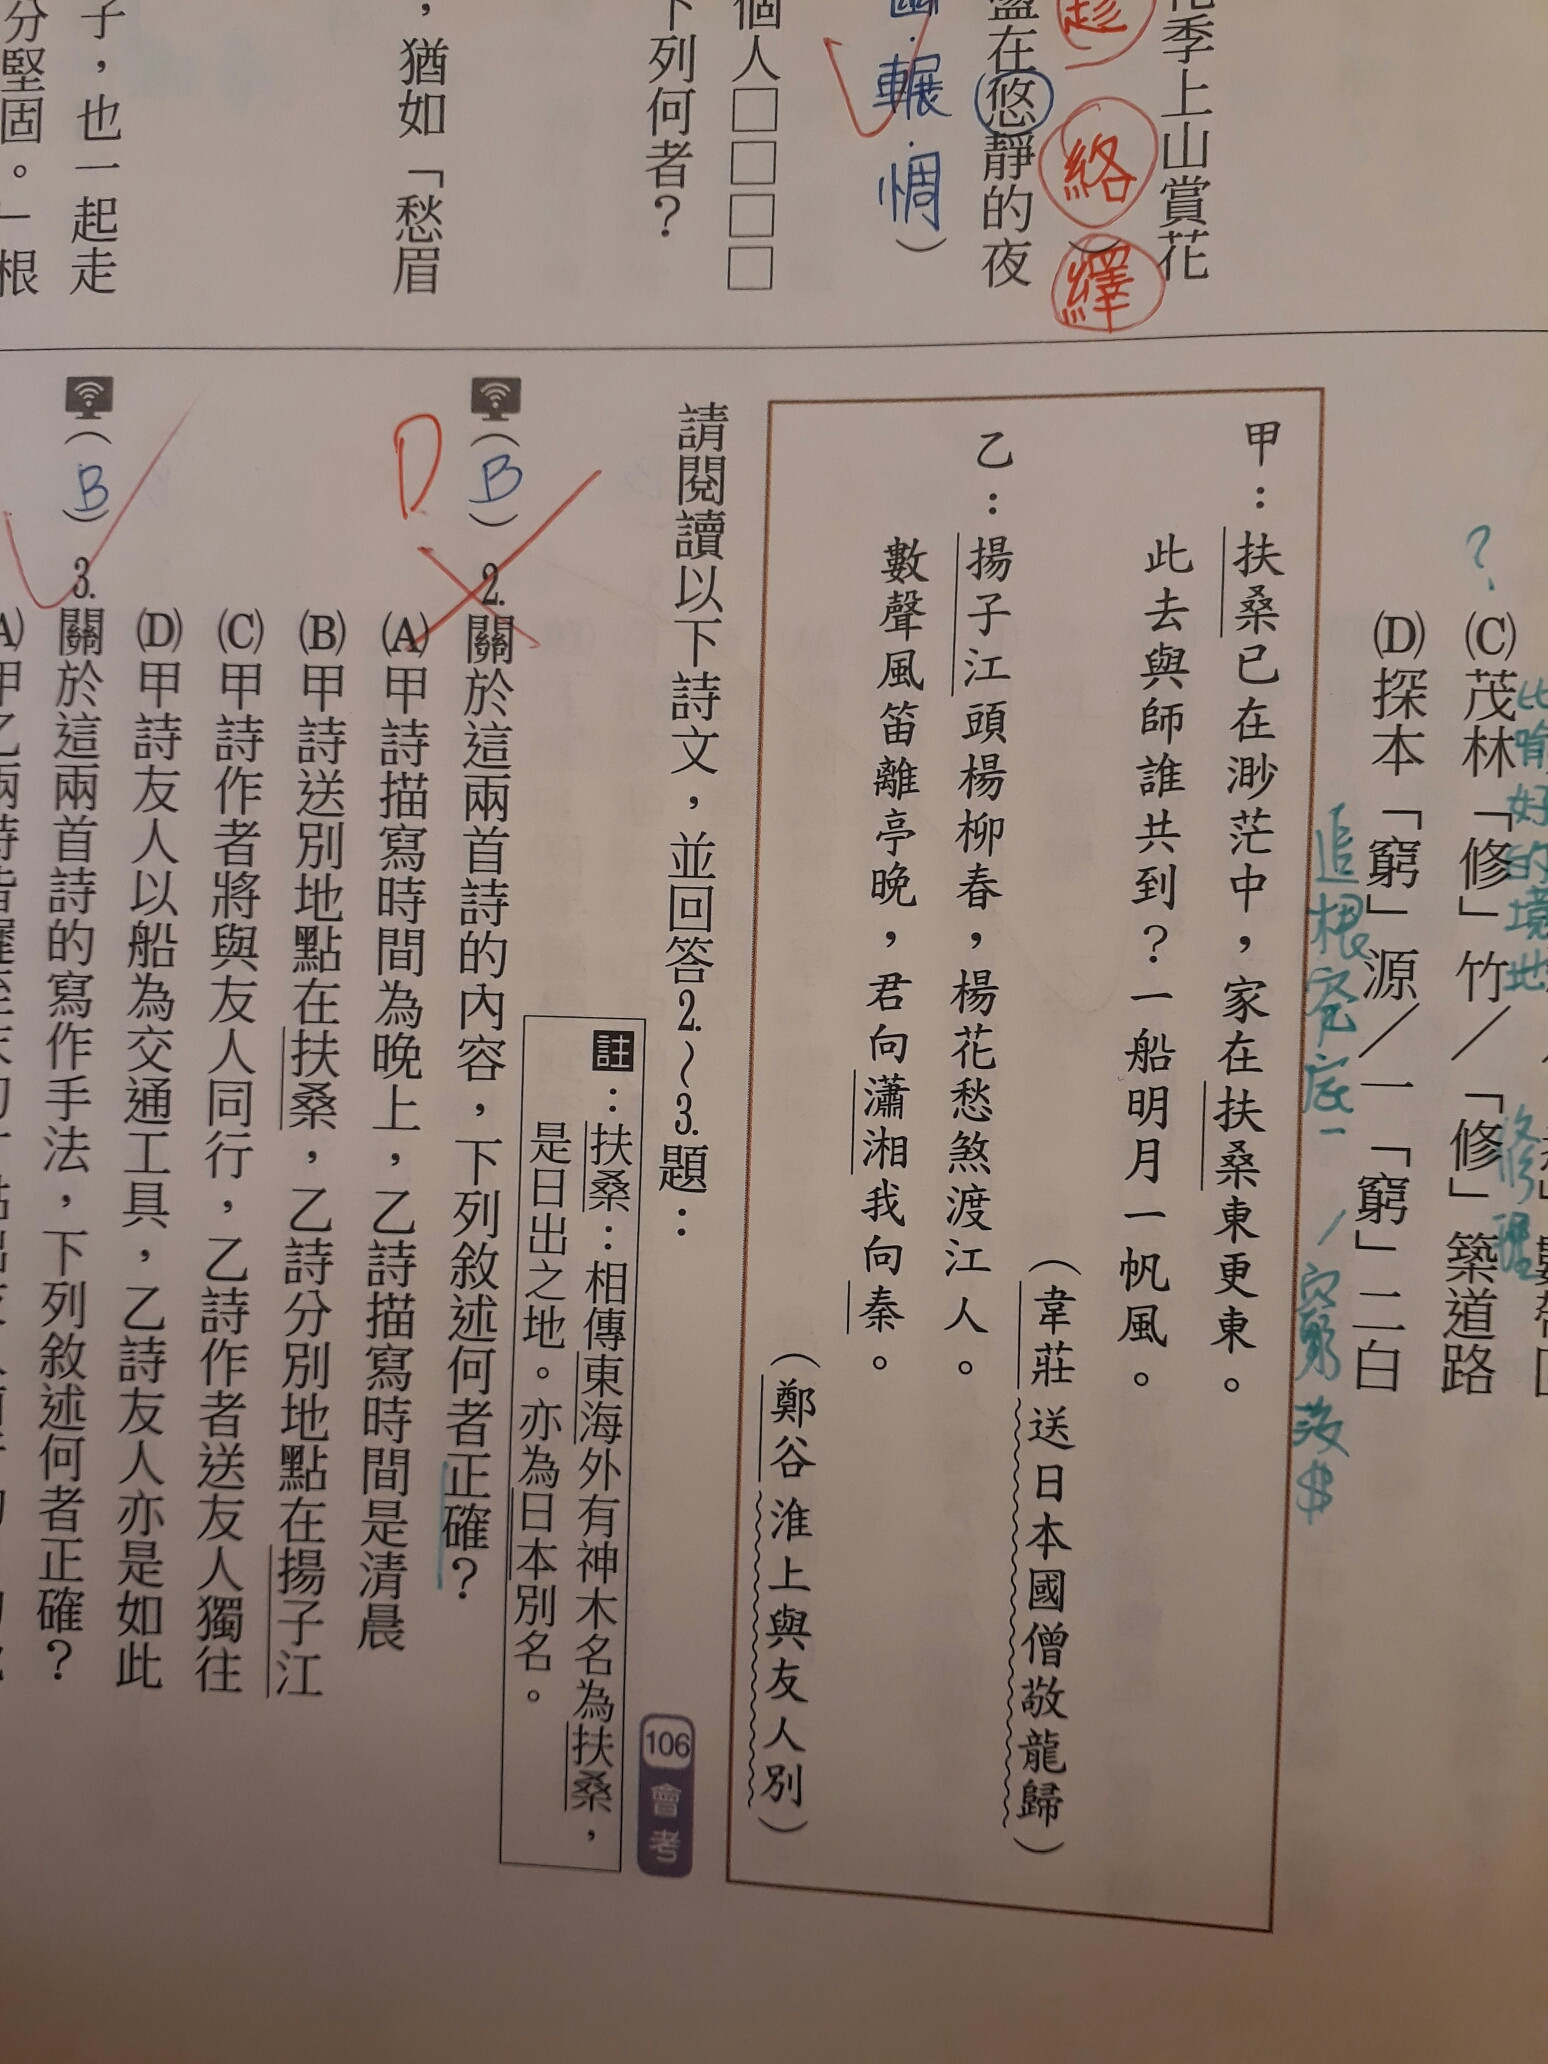 花季上山賞花
趁
絡
繹
盪在悠靜的夜
輾．惆）
個人□□□□
下列何者？
，猶如「愁眉
子，也一起走
分堅固。」根
比喻好的境地
修理
?
(C)茂林「修」竹／「修」築道路
(D)探本「窮」源／一「窮」二白
追根究底
／窮沒$
甲：扶桑已在渺茫中，家在扶桑東更東。
此去與師誰共到？一船明月一帆風。
（韋莊 送日本國僧敬龍歸）
乙：揚子江頭楊柳春，楊花愁煞渡江人。
數聲風笛離亭晚，君向瀟湘我向秦。
（鄭谷 淮上與友人別）
請閱讀以下詩文，並回答2.～3.題：
106會考
註：扶桑：相傳東海外有神木名為扶桑，
是日出之地。亦為日本別名。
(B)2.關於這兩首詩的內容，下列敘述何者正確？
D
(A)甲詩描寫時間為晚上，乙詩描寫時間是清晨
(B)甲詩送別地點在扶桑，乙詩分別地點在揚子江
(C)甲詩作者將與友人同行，乙詩作者送友人獨往
(D)甲詩友人以船為交通工具，乙詩友人亦是如此
(B)3.關於這兩首詩的寫作手法，下列敘述何者正確？